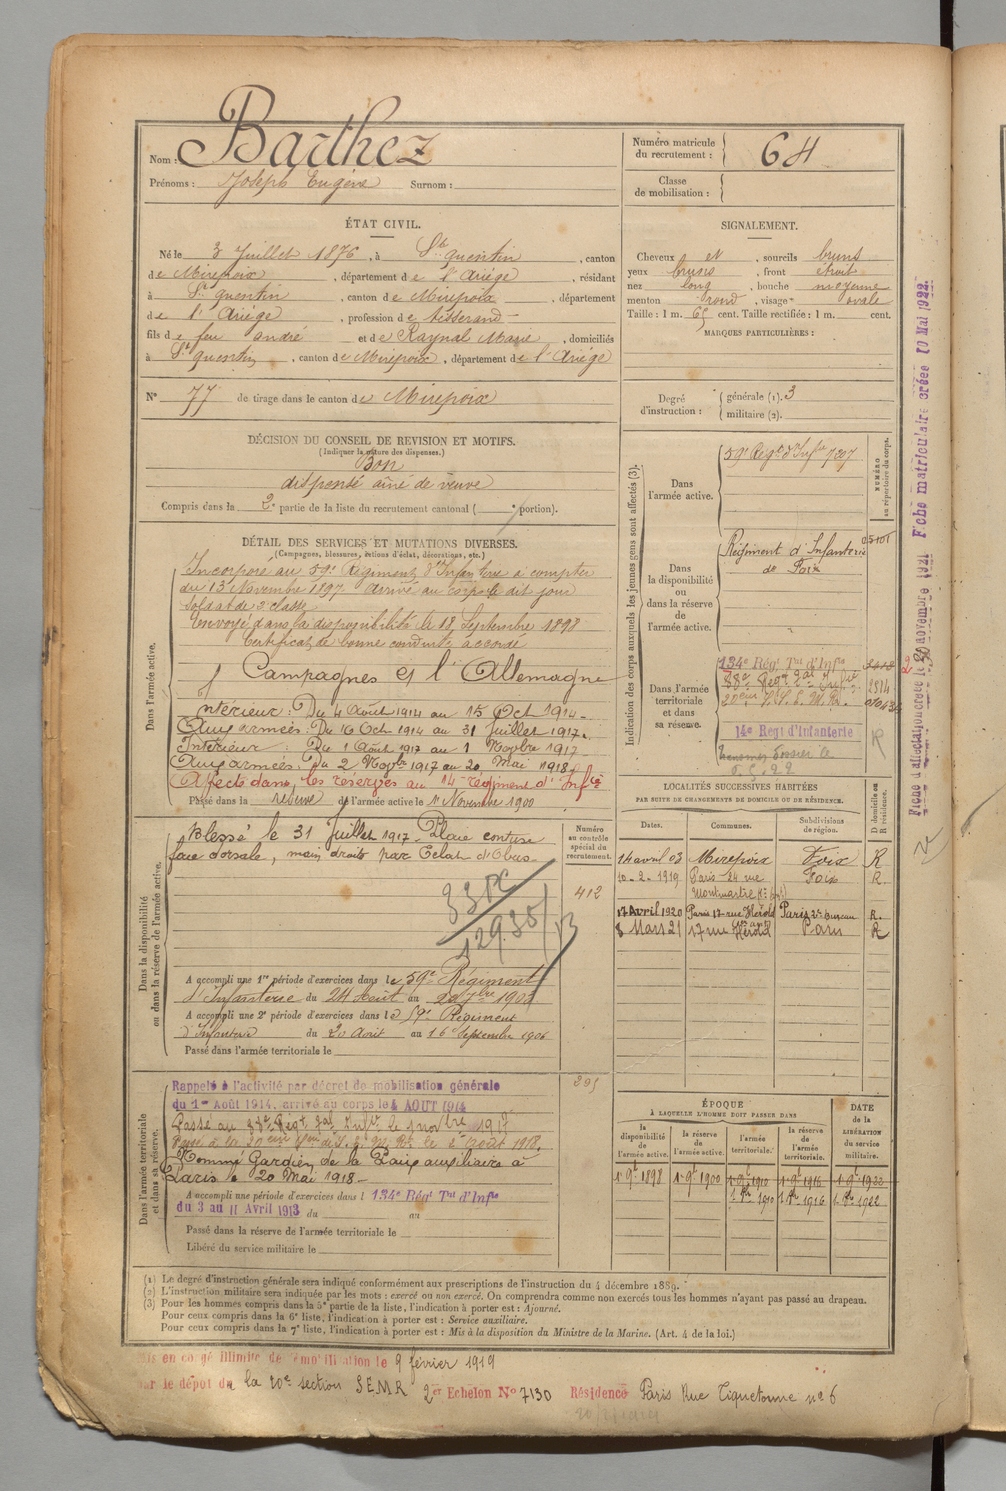 Nom : Barthez
Prénoms : Joseph Eugène Surnom :
Numéro matricule du recrutement : 64
Classe de mobilisation :
ÉTAT CIVIL.
Né le 3 Juillet 1876, à St quentin, canton
de Mirepoix, département de l'Ariège, résidant
à St quentin, canton de Mirepoix, département
de l'Ariège, profession de tisserand
fils de feu andré et de Raynal Marie, domiciliés
à St quentin, canton de Mirepoix, département de l'Ariège
N° 77 de tirage dans le canton de Mirepoix
SIGNALEMENT.
Cheveux et, sourcils bruns
yeux bruns, front étroit
nez long, bouche moyenne
menton rond, visage ovale
Taille : 1 m. 65 cent. Taille rectifiée : 1 m. cent.
MARQUES PARTICULIÈRES :
Degré d'instruction : générale (1). 3
militaire (2).
DÉCISION DU CONSEIL DE REVISION ET MOTIFS.
(Indiquer la nature des dispenses.)
Bon
dispensé aîné de veuve
Compris dans la 2e partie de la liste du recrutement cantonal ( e portion).
DÉTAIL DES SERVICES ET MUTATIONS DIVERSES.
(Campagnes, blessures, actions d'éclat, décorations, etc.)
Dans l'armée active.
Incorporé au 59e Régiment d'Infanterie à compter
du 13 Novembre 1897. Arrivé au corps le dit jour
Soldat de 2e classe
Envoyé dans la disponibilité le 18 Septembre 1898
Certificat de bonne conduite accordé
Campagnes et l'Allemagne
Intérieur : Du 4 Août 1914 au 15 Oct 1914
Aux armées : Du 16 Oct 1914 au 31 Juillet 1917
Intérieur : Du 1 Août 1917 au 1 Novbre 1917
Aux armées : Du 2 Novbre 1917 au 20 Mai 1918
Affecté dans les réserves au 14e régiment d'Inftie
Passé dans la réserve de l'armée active le 1er Novembre 1900
Indication des corps auxquels les jeunes gens sont affectés (3).
NUMÉRO au répertoire du corps.
Dans l'armée active.
59e Régt d'Infie 7807
Dans la disponibilité ou dans la réserve de l'armée active.
Régiment d'Infanterie
de Foix
Dans l'armée territoriale et dans sa réserve.
134e Régt Tal d'Infie
14e Regt d'Infanterie
Fiche d'affectation créée le 30 novembre 1921 Fiche matriculaire créée 10 Mai 1922.
Dans la disponibilité ou dans la réserve de l'armée active.
Blessé le 31 Juillet 1917. Plaie contuse
face dorsale, main droite par Eclat d'Obus
Numéro au contrôle spécial du recrutement.
412
A accompli une 1re période d'exercices dans le 59e Régiment
d'Infanterie du 24 Août au
A accompli une 2e période d'exercices dans le 59e Régiment
d'Infanterie du 20 Août au 16 Septembre 1906
Passé dans l'armée territoriale le
LOCALITÉS SUCCESSIVES HABITÉES
PAR SUITE DE CHANGEMENTS DE DOMICILE OU DE RÉSIDENCE.
Dates. Communes. Subdivisions de région. D domicile ou R résidence.
14 avril 03 Mirepoix Foix R
10-2-1919 Paris 24 rue Foix R
Montmartre
17 Avril 1920 Paris 17 rue Hérold Paris 2e Bureau R.
8 Mars 21 17 rue Hérold Paris R
Dans l'armée territoriale et dans sa réserve.
Rappelé à l'activité par décret de mobilisation générale
du 1er Août 1914, arrivé au corps le 4 AOUT 1914
Passé au 88e Régt Tal Infie le 1 novbre 1917
Nommé Gardien de la Paix auxiliaire à
Paris le 20 Mai 1918
A accompli une période d'exercices dans l 134e Régt Tal d'Infie
du 3 au 11 Avril 1913 du au
Passé dans la réserve de l'armée territoriale le
Libéré du service militaire le
ÉPOQUE
A LAQUELLE L'HOMME DOIT PASSER DANS
la disponibilité de l'armée active. la réserve de l'armée active. l'armée territoriale. la réserve de l'armée territoriale. DATE de la LIBÉRATION du service militaire.
1er 9bre 1898 1er 9bre 1900 1er 9bre 1910 1er 9bre 1916 1er 9bre 1922
1er 8bre 1910 1er 8bre 1916 1er 8bre 1922
(1) Le degré d'instruction générale sera indiqué conformément aux prescriptions de l'instruction du 4 décembre 1889.
(2) L'instruction militaire sera indiquée par les mots : exercé ou non exercé. On comprendra comme non exercés tous les hommes n'ayant pas passé au drapeau.
(3) Pour les hommes compris dans la 5e partie de la liste, l'indication à porter est : Ajourné.
Pour ceux compris dans la 6e liste, l'indication à porter est : Service auxiliaire.
Pour ceux compris dans la 7e liste, l'indication à porter est : Mis à la disposition du Ministre de la Marine. (Art. 4 de la loi.)
Mis en congé illimité de démobilisation le 9 février 1919
par le dépôt de la 20e section SEMR 2er Echelon N° 7130 Résidence Paris Rue Tiquetonne n° 6